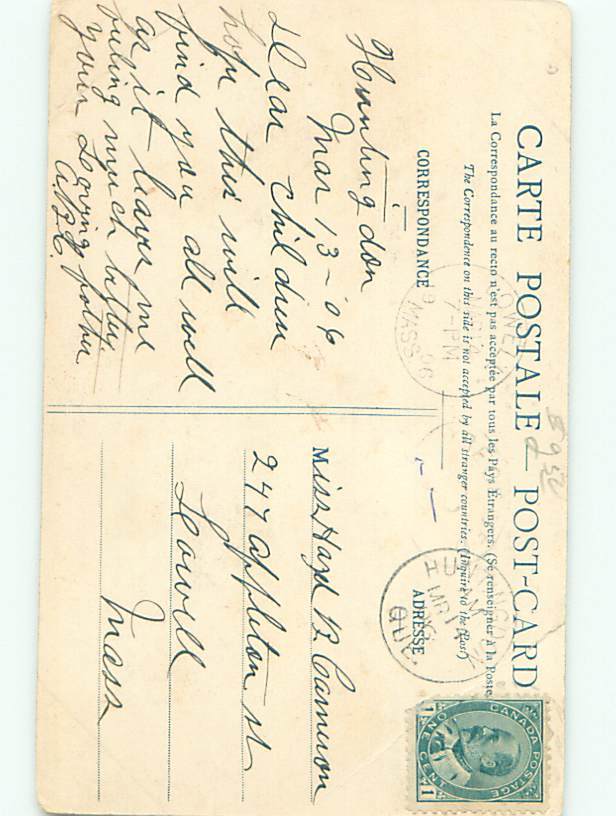 CARTE POSTALE — POST-CARD
La Correspondance au recto n'est pas acceptée par tous les Pays Étrangers. (Se renseigner à la Poste
The Correspondence on this side is not accepted by all stranger countries. (Inquire to the Post)
CORRESPONDANCE
ADRESSE
Huntingdon
Mar 13 - '06
Dear Children
hope this will
find you all well
as it leaves me
feeling much better
your Loving father
Miss Hazel B. Cameron
247 Appleton st
Lowell
Mass
LOWELL
7-PM
'06
MASS
QUE.
CANADA POSTAGE
ONE CENT
1 1